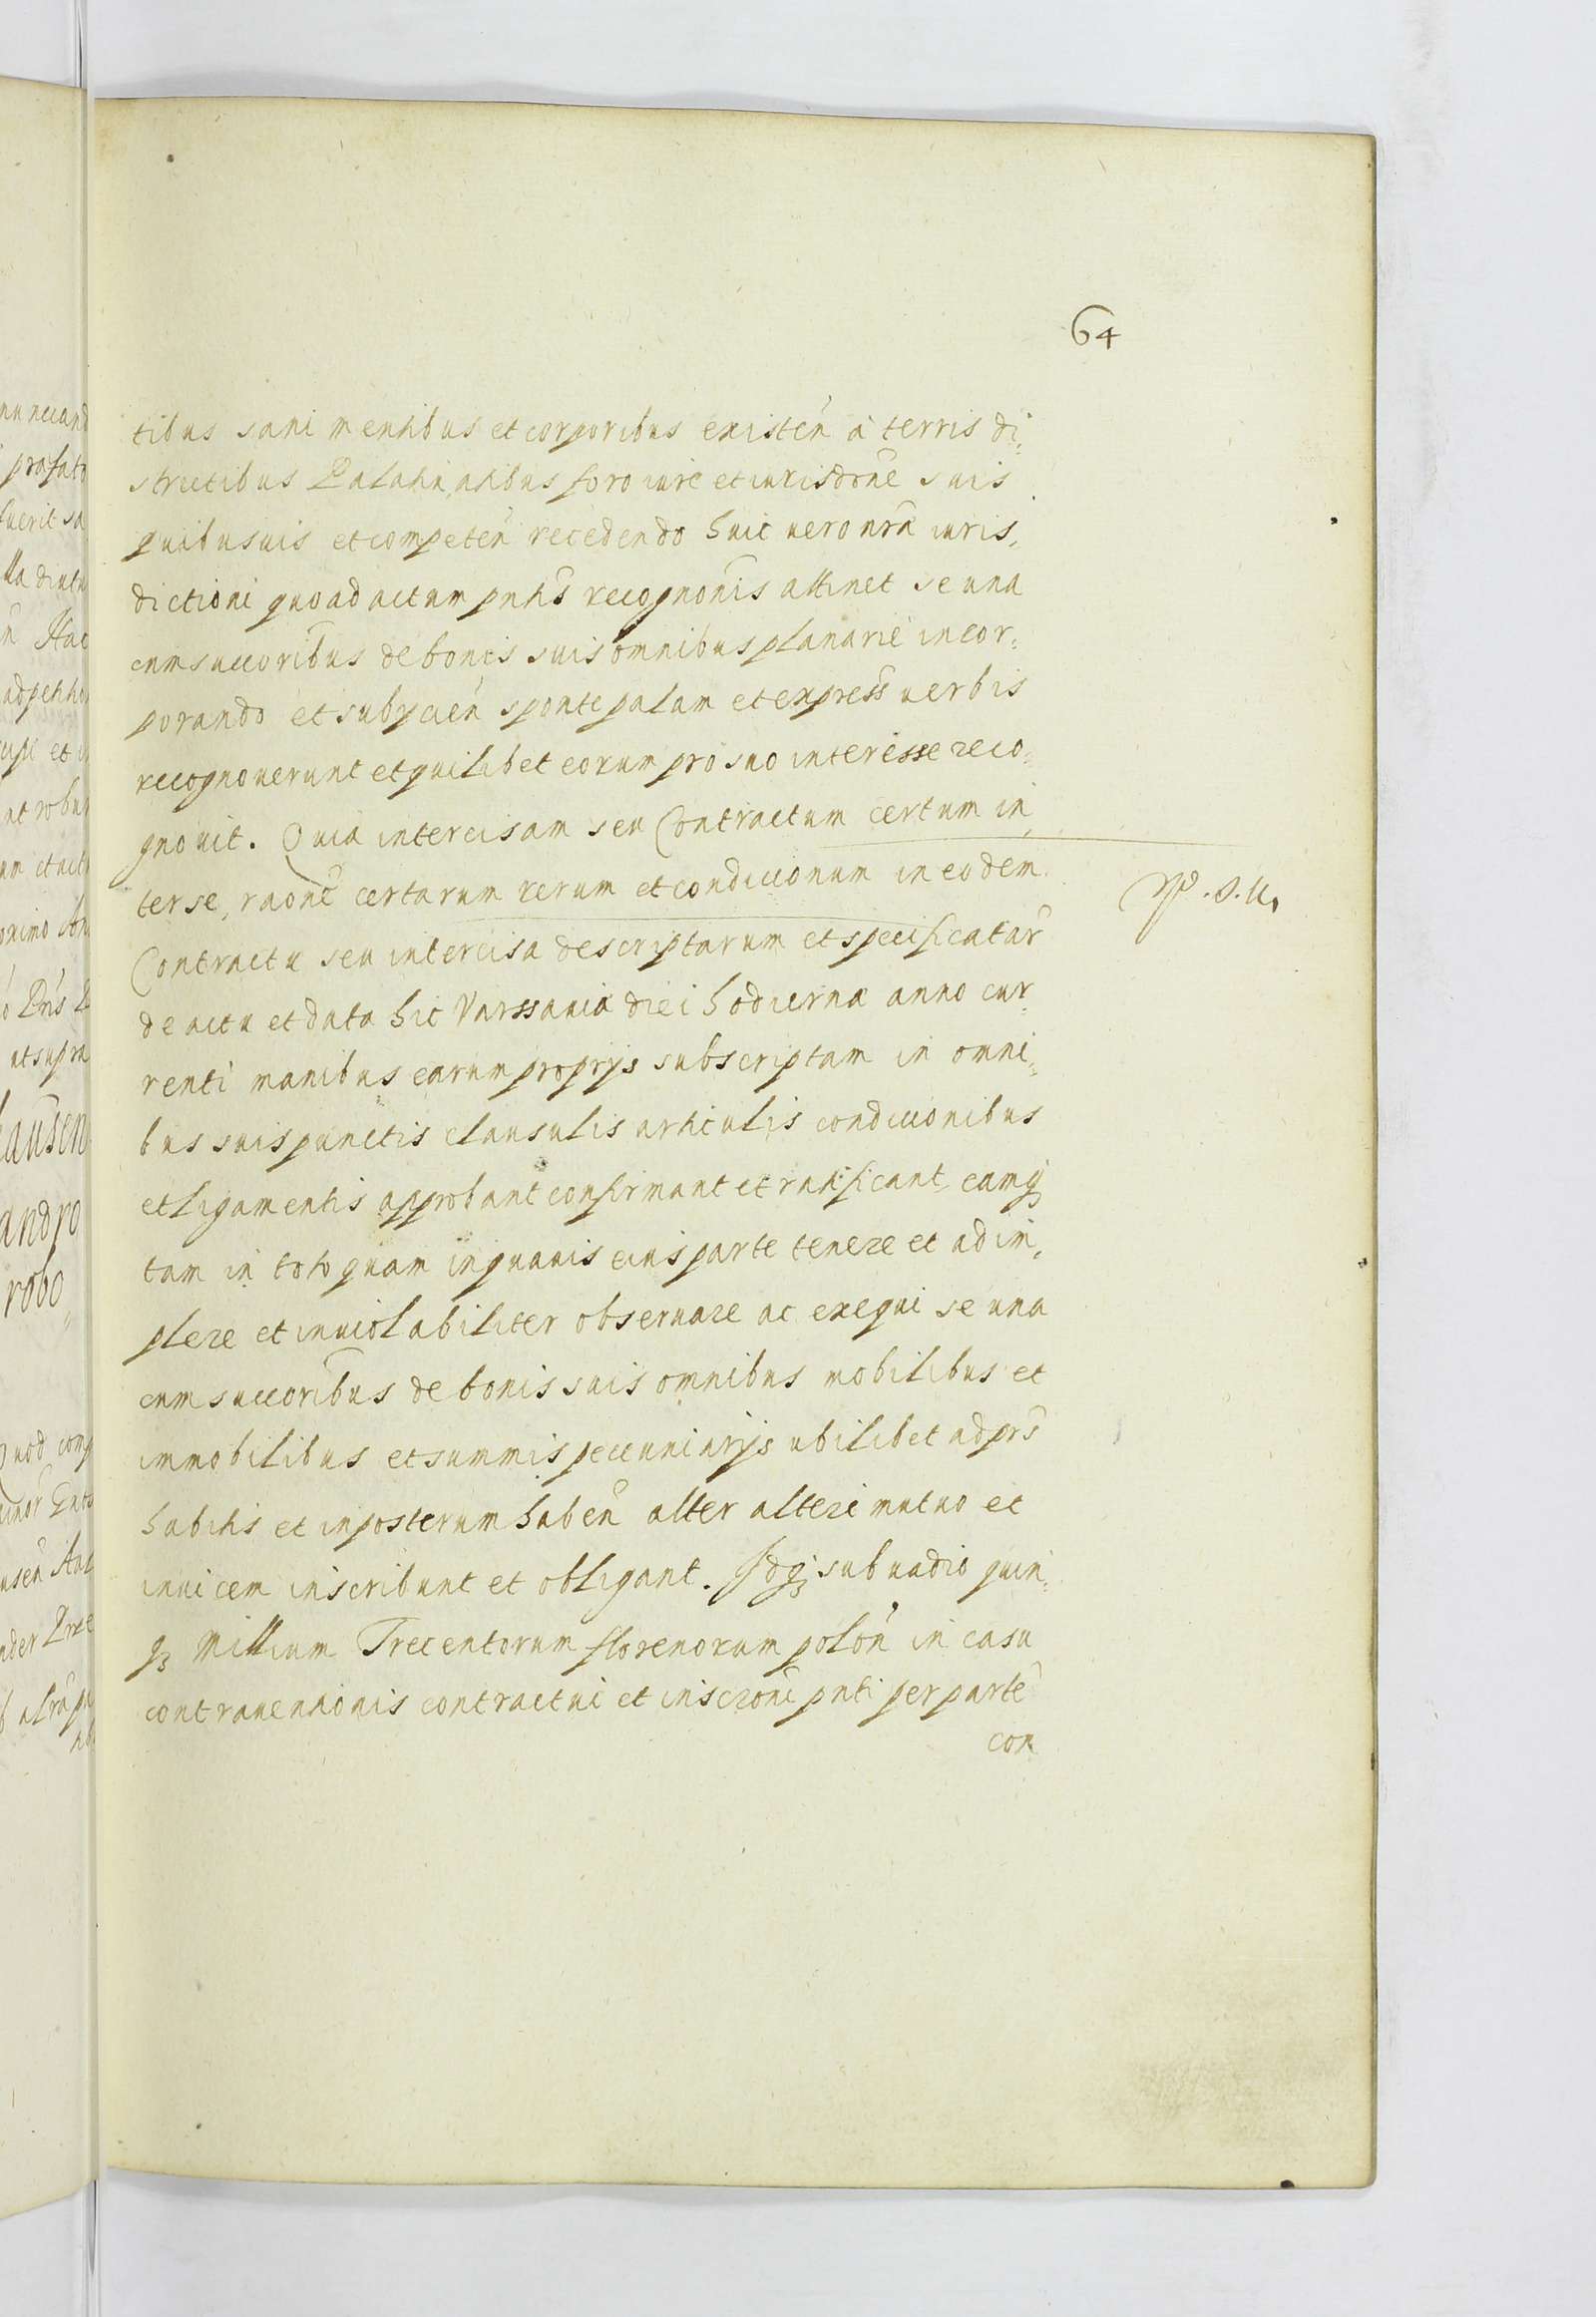 64
tibus sani mentibus et corporibus existen̄ à terris di=
strictibus Palatinatibus foro iure et iurisdōne suis
quibusuis et competen̄ recedendo huic uero nr̄a iuris=
dictioni quoad actum pn̄tis recognōnis attinet se una
cum succōribus de bonis suis omnibus planarie incor=
porando et subycien̄ sponte palam et express̄ uerbis
recognouerunt et quilibet eorum pro suo interesse reco=
gnouit. Quia intercisam seu Contractum certum in
ter se, raōne certarum rerum et condicionum in eodem
W. S. U.
Contractu seu intercisa descriptarum et specificatar̄
de actu et data hic Varssauia diei hodierna anno cur=
renti manibus earum proprys subscriptam in omni=
bus suis punctis clausulis articulis condicionibus
et ligamentis approbant confirmant et ratificant eamq3
tam in toto quam in quauis eius parte tenere et adim=
plere et inuiolabiliter obseruare ac exequi se una
cum succōribus de bonis suis omnibus mobilibus et
immobilibus et summis pecuniarys ubilibet ad prn̄s
habitis et inposterum haben̄ alter alteri mutuo et
inuicem inscribunt et obligant. Idq3 sub uadio quin=
q3 Millium Trecentorum florenorum polon̄ in casu
contrauentionis contractui et inscrōni pnti per parte
con